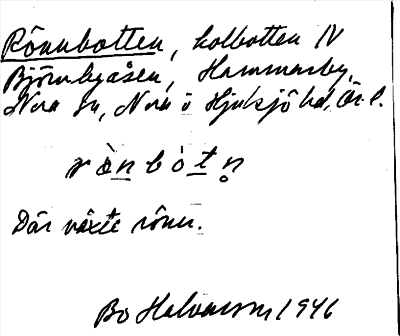 Rönnbotten, kolbotten N
Björnbyåsen, Hammarby,
Nora sn, Nora o Hjulsjö hd, Ör. l.
rònbòtn̥
Där växte rönn.
Bo Halvarson 1946